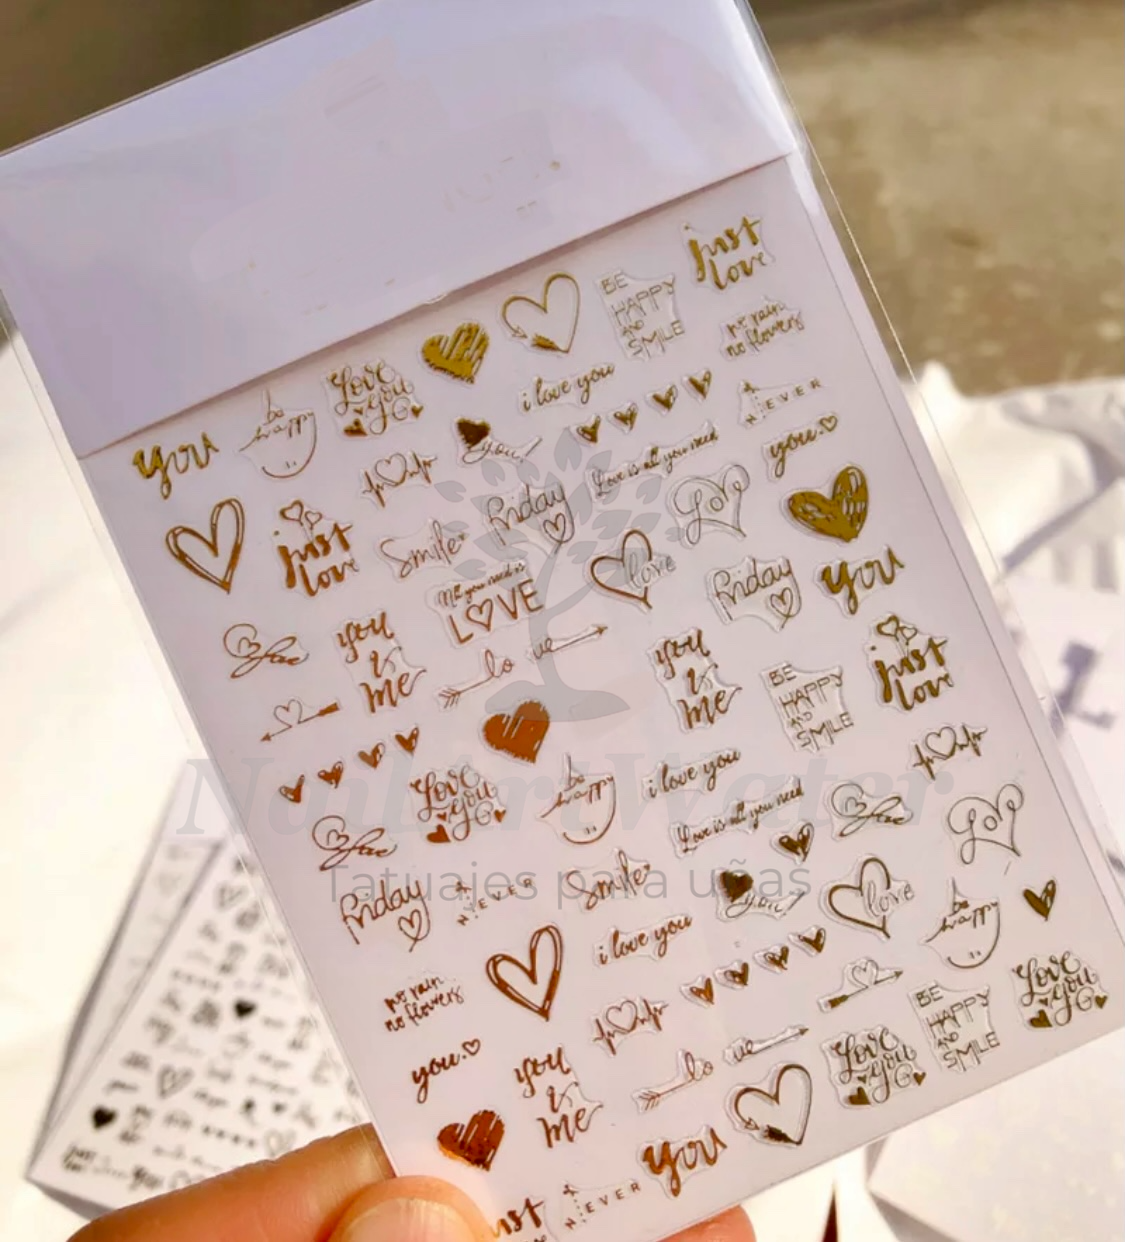 just
love
BE
HAPPY
AND
SMILE
no rain
no flowers
Love
you
i love you
be
happy
you
NEVER
you!
you
Love is all you need
friday
just
love
smile
Love
All you need is
LOVE
love
friday
you
you
&
me
lo ve
love
you
&
me
BE
HAPPY
AND
SMILE
just
love
Love
you
be
happy
i love you
Love is all you need
NailartWater
love
love
Love
Tatuajes para uñas
friday
NEVER
smile
you!
love
be
happy
i love you
no rain
no flowers
you
you
&
me
lo ve
BE
HAPPY
AND
SMILE
Love
you
Love
you
you
NEVER
just